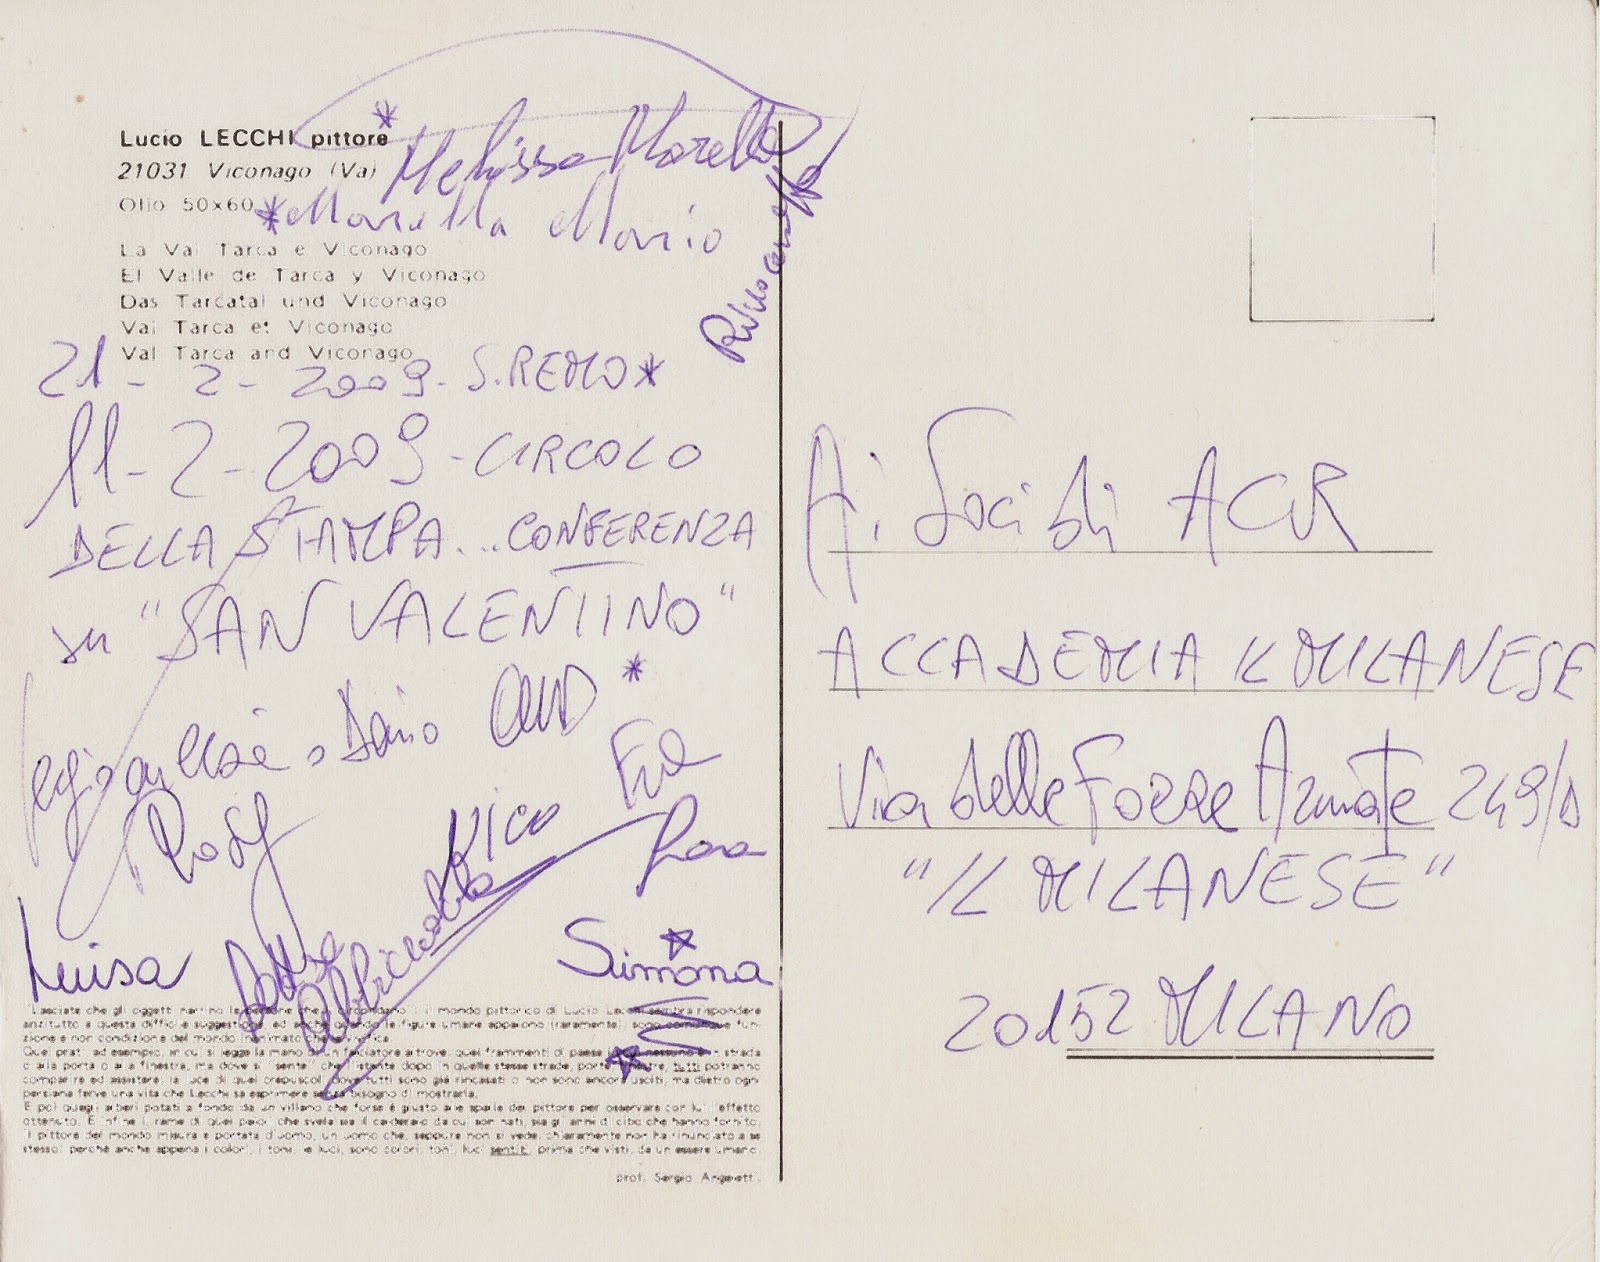 Lucio LECCHI pittore *
21031 Viconago (Va) Melissa Morella
Olio 50x60 * Morella Mario
La Val Tarca e Viconago
El Valle de Tarca y Viconago
Das Tarcatal und Viconago
Val Tarca et Viconago
Val Tarca and Viconago
21-2-2009-S.REMO*
11-2-2009-CIRCOLO
DELLA STAMPA...CONFERENZA
su "SAN VALENTINO"
Dario *
Kico
Luisa
Simona
"Lasciate che gli oggetti il mondo pittorico di Lucio Lecchi sembra rispondere
anzitutto a questa difficile suggestione, ed anche quando le figure umane appaiono (raramente), sono comunque fun-
zione e non condizione del mondo inanimato che
Quei prati, ad esempio, in cui si legge la mano di un falciatore altrove, quei frammenti di paese strada
o alla porta o alla finestra, ma dove si "sente" che l'istante dopo in quelle stesse strade, porte, tutti potranno
comparire ed assistere; la luce di quei crepuscoli dove tutti sono già rincasati o non sono ancora usciti, ma dietro ogni
persiana ferve una vita che Lecchi sa esprimere senza bisogno di mostrarla.
E poi quegli alberi potati a fondo da un villano che forse è giusto alle spalle del pittore per osservare con lui l'effetto
ottenuto. E infine il rame di quei paioli che svela sia il calderaio da cui son nati, sia gli anni di cibo che hanno fornito.
Il pittore del mondo misura e portata d'uomo, un uomo che, seppure non si vede, chiaramente non ha rinunciato a se
stesso, perché anche appena i colori, i toni, le luci, sono colori, toni, luci sentiti, prima che visti, da un essere umano.
prof. Sergio
Ai Soci di ACR
ACCADEMIA IL MILANESE
Via delle Forze Armate 249/D
"IL MILANESE"
20152 MILANO